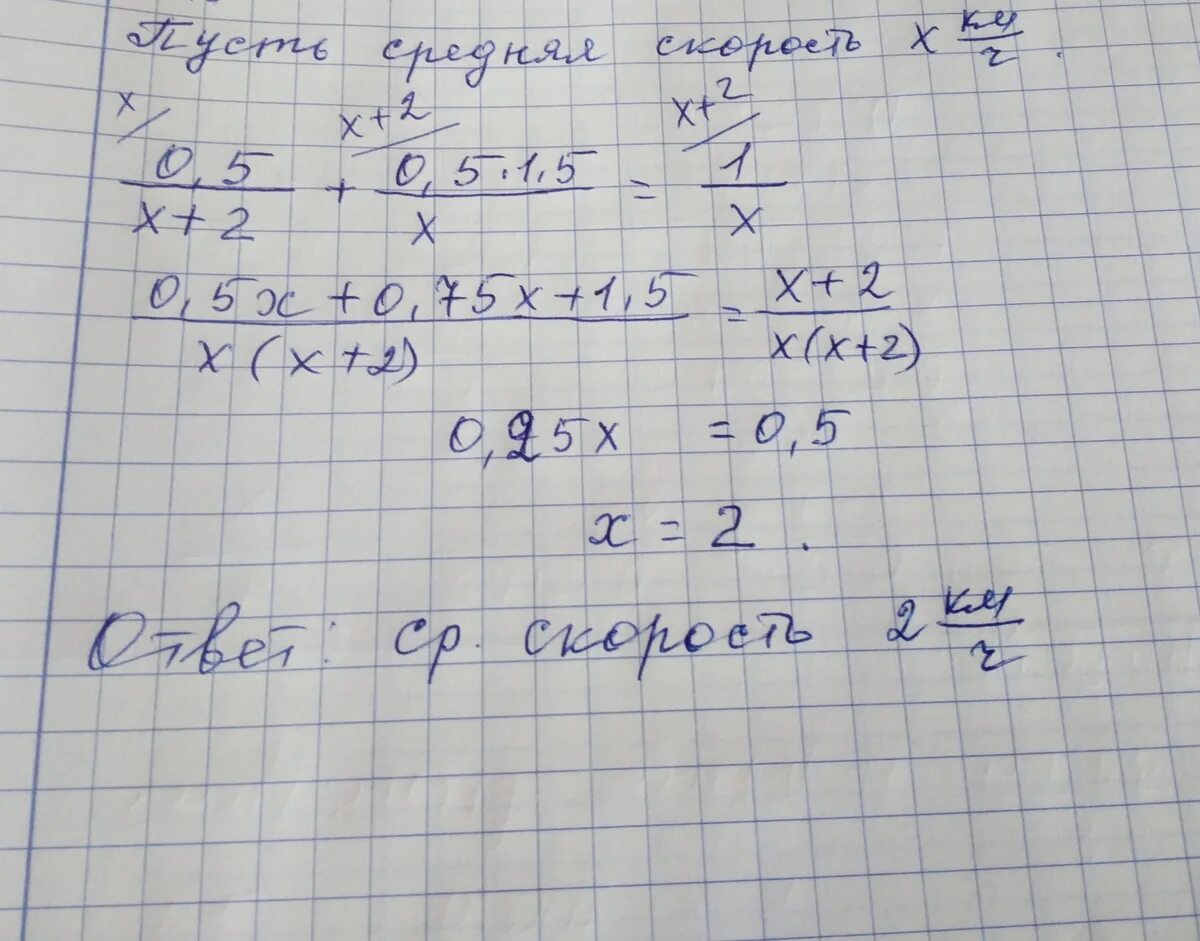 Пусть средняя скорость x км/ч.
x/ x+2/ x+2/
0,5/(x+2) + 0,5·1,5/x = 1/x
(0,5x+0,75x+1,5)/(x(x+2)) = (x+2)/(x(x+2))
0,25x = 0,5
x = 2.
Ответ: ср. скорость 2 км/ч